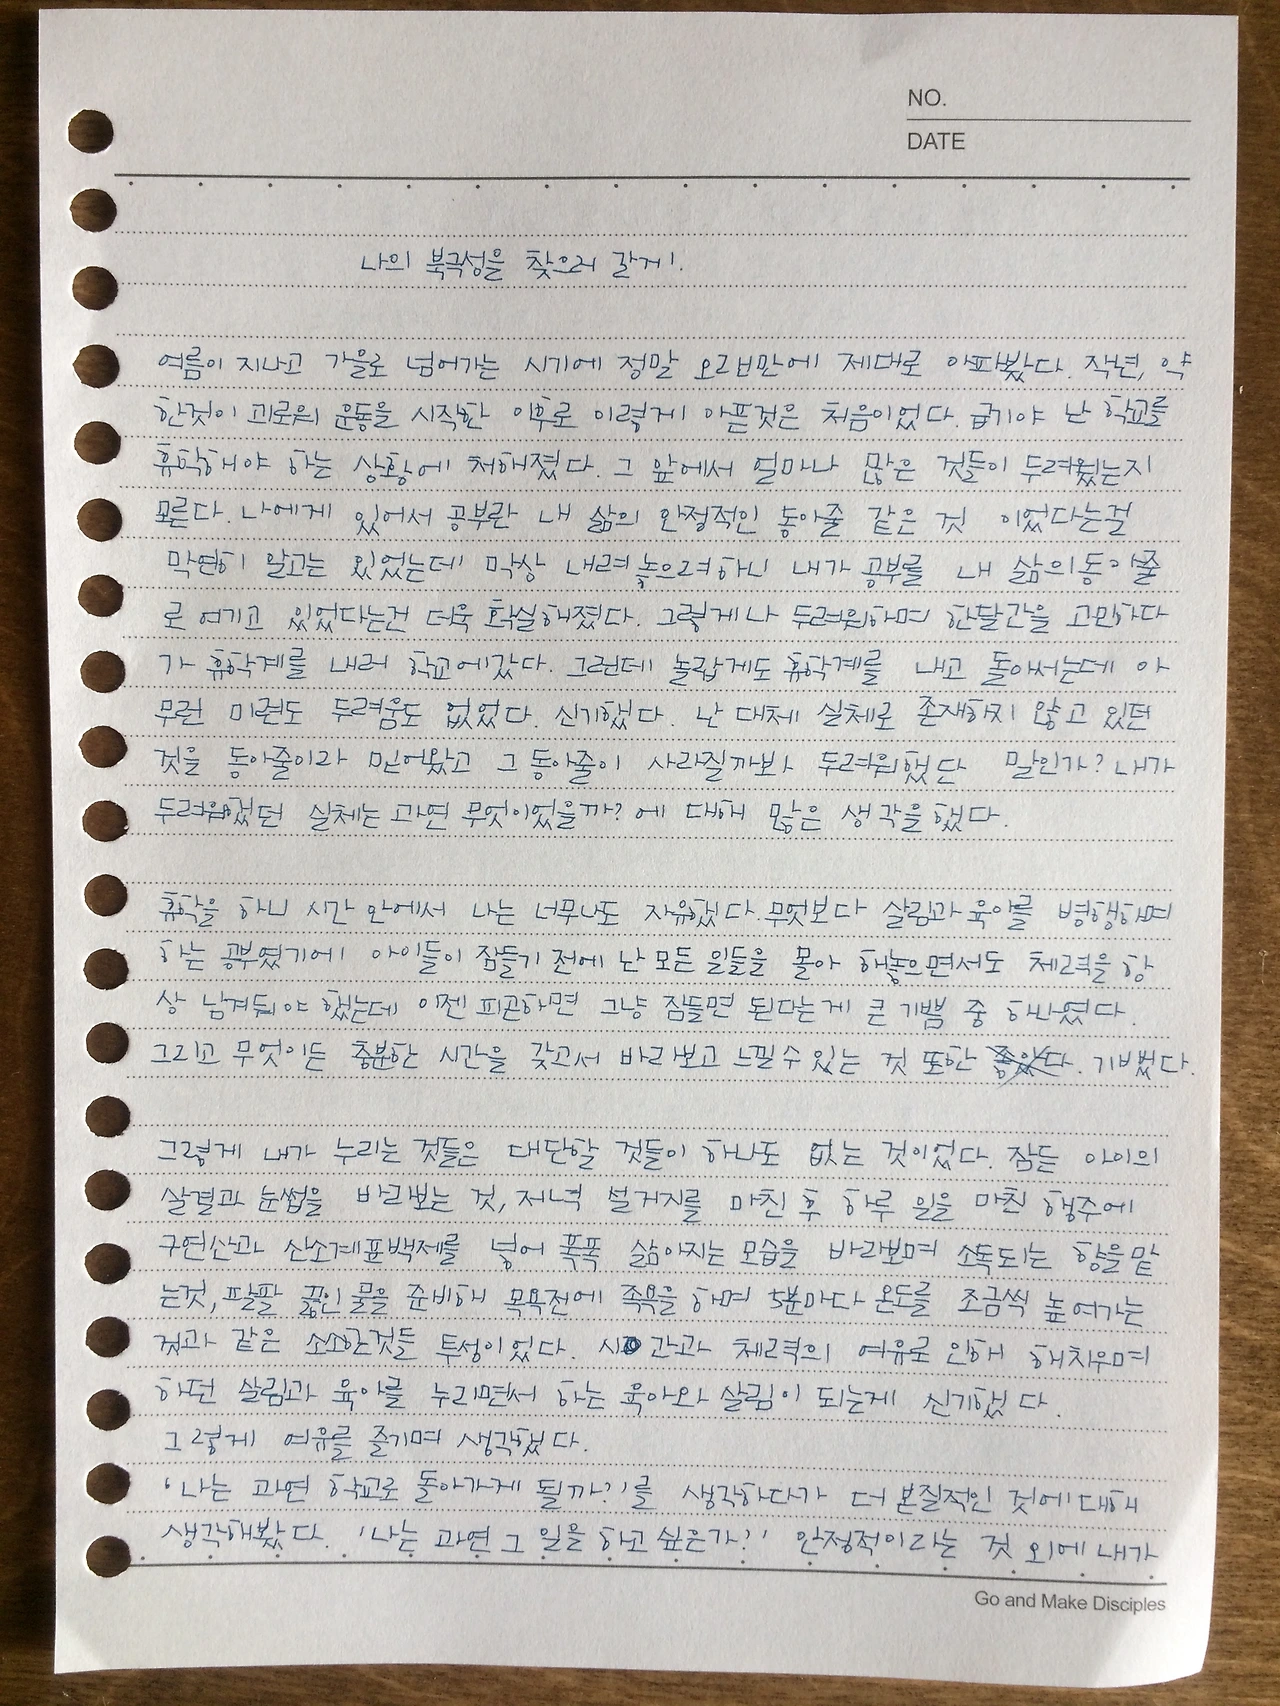 NO.
DATE
나의 북극성을 찾으러 갈게!
여름이 지나고 가을로 넘어가는 시기에 정말 오랜만에 제대로 아파봤다. 작년, 약
한것이 괴로워 운동을 시작한 이후로 이렇게 아픈것은 처음이었다. 급기야 난 학교를
휴학해야 하는 상황에 처해졌다. 그 앞에서 얼마나 많은 것들이 두려웠는지
모른다. 나에게 있어서 공부란 내 삶의 안정적인 동아줄 같은 것 이었다는걸
막연히 알고는 있었는데 막상 내려놓으려하니 내가 공부를 내 삶의동아줄
로 여기고 있었다는건 더욱 확실해졌다. 그렇게나 두려워하며 한달간을 고민하다
가 휴학계를 내러 학교에갔다. 그런데 놀랍게도 휴학계를 내고 돌아서는데 아
무런 미련도 두려움도 없었다. 신기했다. 난 대체 실체로 존재하지 않고 있던
것을 동아줄이라 믿어왔고 그 동아줄이 사라질까봐 두려워했단 말인가? 내가
두려워했던 실체는 과연 무엇이었을까? 에 대해 많은 생각을 했다.
휴학을 하니 시간 안에서 나는 너무나도 자유했다. 무엇보다 살림과 육아를 병행하며
하는 공부였기에 아이들이 잠들기 전에 난 모든 일들을 몰아 해놓으면서도 체력을 항
상 남겨둬야 했는데 이젠 피곤하면 그냥 잠들면 된다는게 큰 기쁨 중 하나였다.
그리고 무엇이든 충분한 시간을 갖고서 바라보고 느낄수 있는 것 또한 좋았다. 기뻤다.
그렇게 내가 누리는 것들은 대단할 것들이 하나도 없는 것이었다. 잠든 아이의
살결과 눈썹을 바라보는 것, 저녁 설거지를 마친 후 하루 일을 마친 행주에
구연산과 산소계표백제를 넣어 푹푹 삶아지는 모습을 바라보며 소독되는 향을 맡
는것, 팔팔 끓인 물을 준비해 목욕전에 족욕을 하며 5분마다 온도를 조금씩 높여가는
것과 같은 소소한것들 투성이었다. 시간과 체력의 여유로 인해 해치우며
하던 살림과 육아를 누리면서 하는 육아와 살림이 되는게 신기했다.
그렇게 여유를 즐기며 생각했다.
'나는 과연 학교로 돌아가게 될까?'를 생각하다가 더 본질적인 것에대해
생각해봤다. '나는 과연 그 일을 하고 싶은가?' 안정적이라는 것 외에 내가
Go and Make Disciples